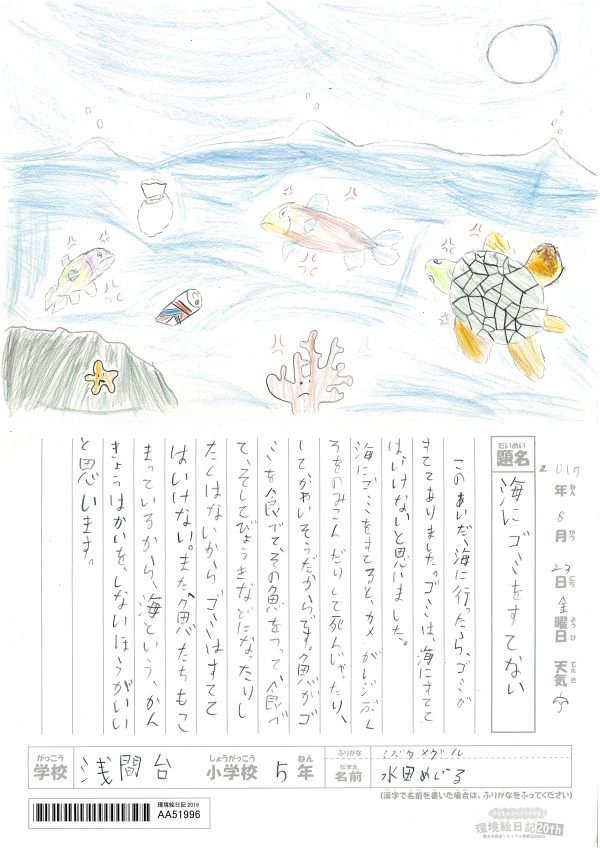 2019年8月23日金曜日 天気
だいめい
題名
海にゴミをすてない
このあいだ、海に行ったら、ゴミが
すててありました。ゴミは、海にすてて
は、いけないと思いました。
海にゴミをすてると、カメがレジぶく
ろをのみこんだりして死んじゃったり、
してかわいそうだからです。魚がゴ
ミを食べて、その魚をつって、食べ
て、そしてびょうきなどになったりし
たくはないからゴミはすてて
はいけない。また、魚たちもこ
まっているから、海という、かん
きょうはかいを、しないほうがいい
と思います。
がっこう しょうがっこう ねん ふりがな ミズタ メグル
学校 浅間台 小学校 5年 なまえ 名前 水田めぐる
(漢字で名前を書いた場合は、ふりがなをふってください)
環境絵日記 2019
AA51996
環境絵日記20th